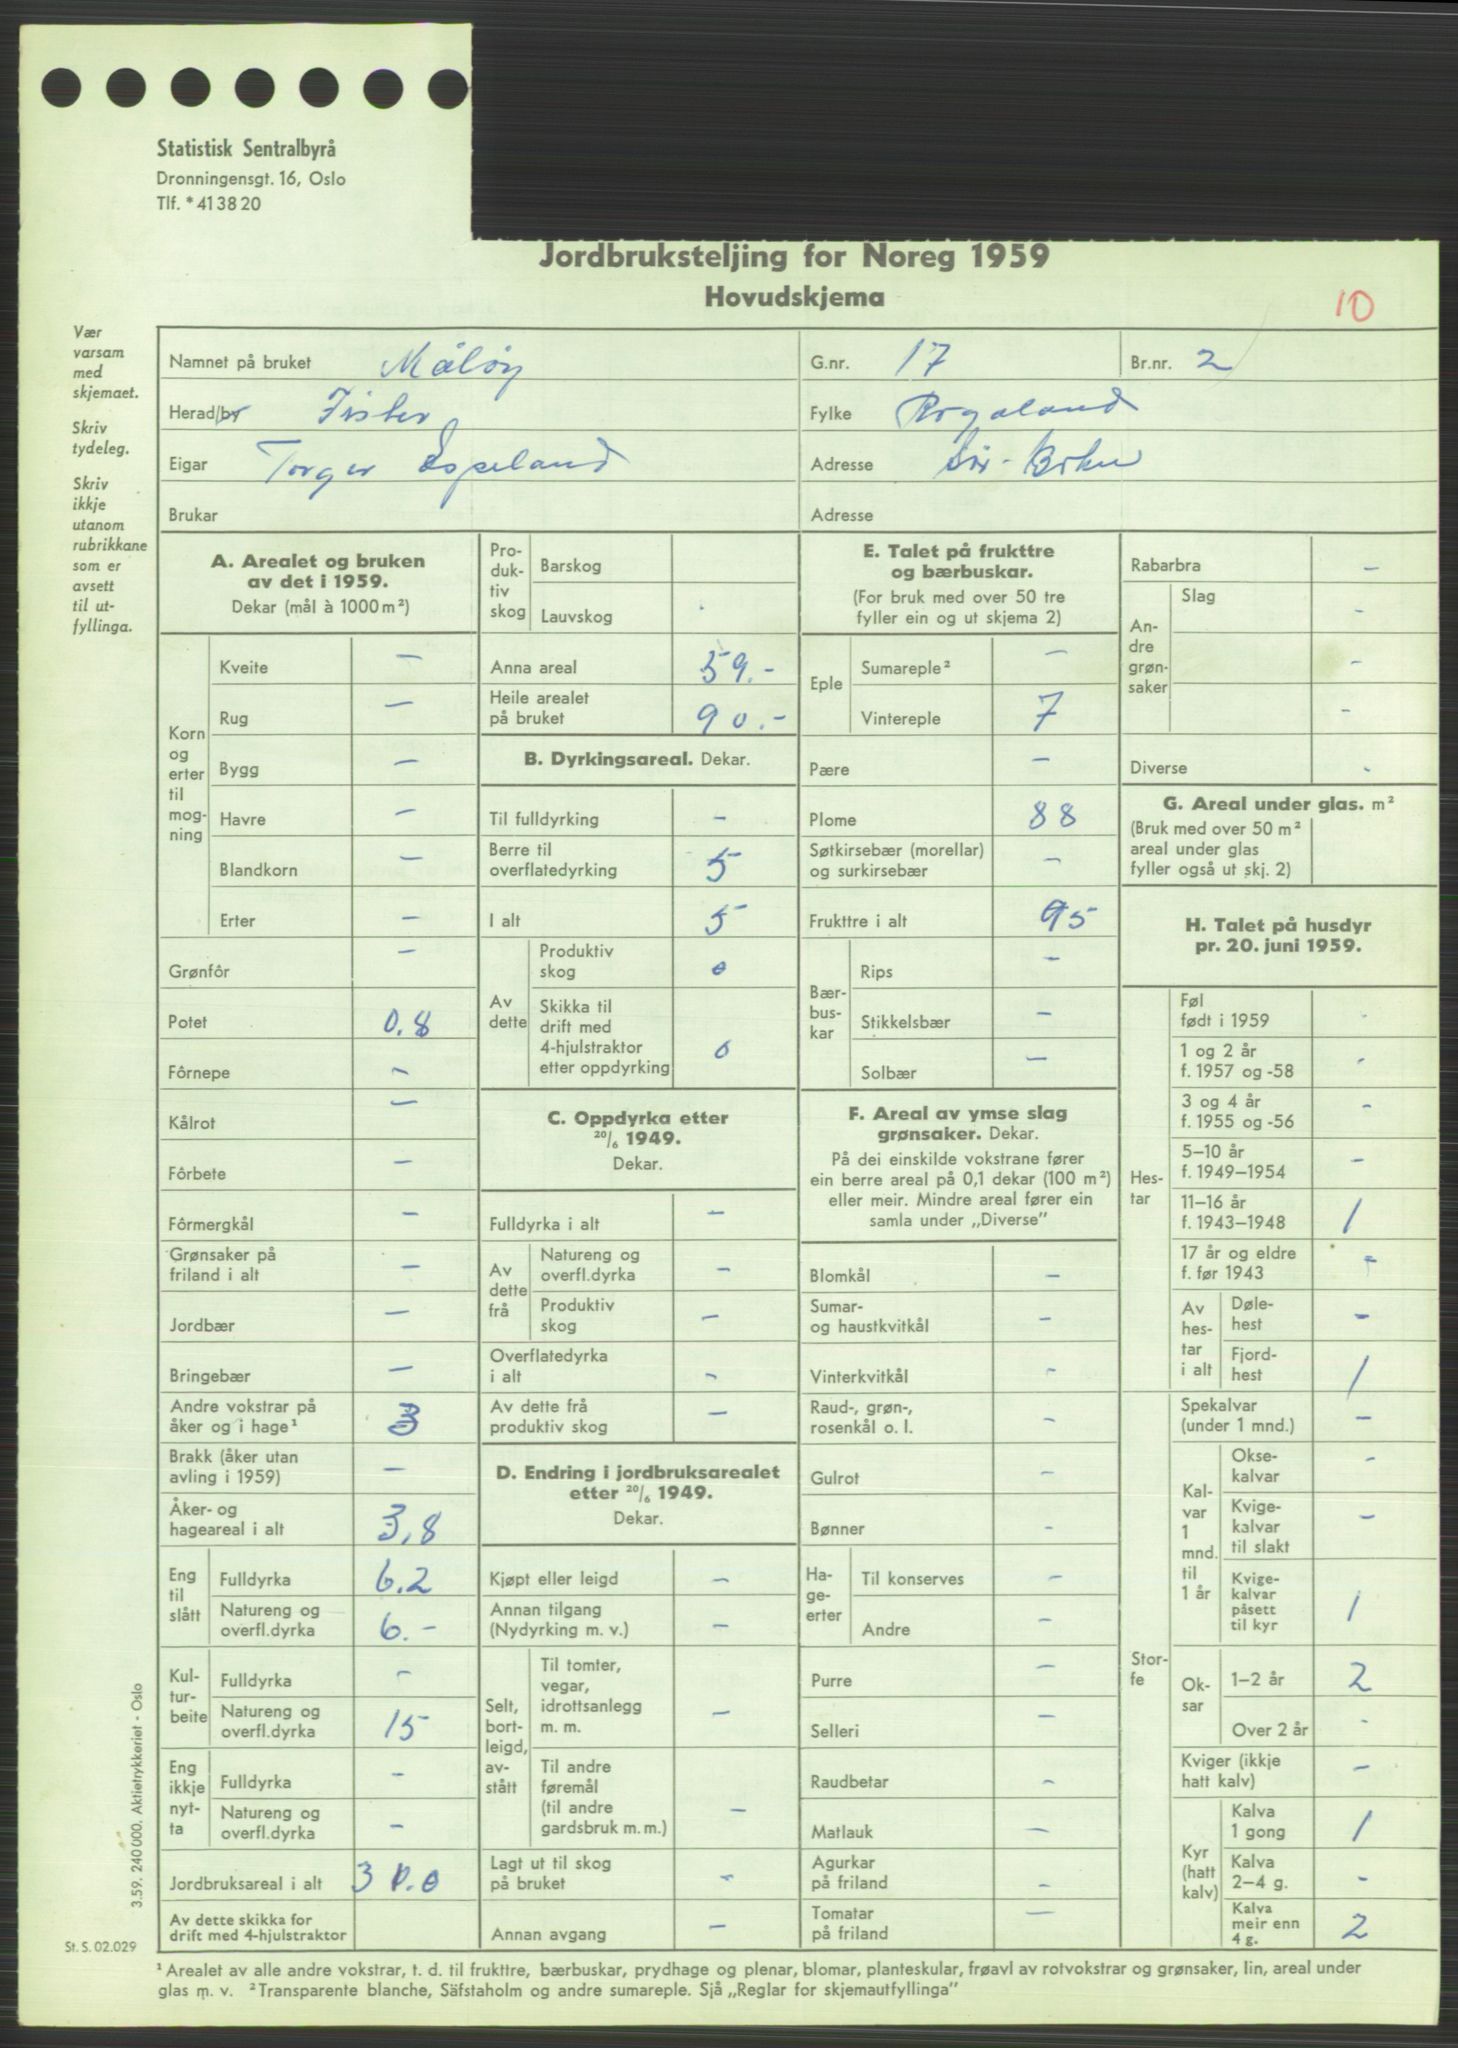 Statistisk Sentralbyrå
Dronningensgt. 16, Oslo
Tlf. * 41 38 20
Jordbruksteljing for Noreg 1959
Hovudskjema
10
Vær
varsam
med
skjemaet.
Skriv
tydeleg.
Skriv
ikkje
utanom
rubrikkane
som er
avsett
til ut-
fyllinga.
Namnet på bruket Måløy G.nr. 17 Br.nr. 2
Herad/by Fister Fylke Rogaland
Eigar Torger Espeland Adresse Sør-
Brukar Adresse
A. Arealet og bruken
av det i 1959.
Dekar (mål à 1000 m²)
Korn
og
erter
til
mog-
ning
Kveite –
Rug –
Bygg –
Havre –
Blandkorn –
Erter –
Grønfôr –
Potet 0.8
Fôrnepe –
Kålrot –
Fôrbete –
Fôrmergkål –
Grønsaker på
friland i alt –
Jordbær –
Bringebær –
Andre vokstrar på
åker og i hage¹ 3
Brakk (åker utan
avling i 1959) –
Åker- og
hageareal i alt 3,8
Eng
til
slått
Fulldyrka 6.2
Natureng og
overfl.dyrka 6.–
Kul-
tur-
beite
Fulldyrka –
Natureng og
overfl.dyrka 15
Eng
ikkje
nyt-
ta
Fulldyrka –
Natureng og
overfl.dyrka –
Jordbruksareal i alt 30.0
Av dette skikka for
drift med 4-hjulstraktor
Pro-
duk-
tiv
skog
Barskog
Lauvskog
Anna areal 59.–
Heile arealet
på bruket 90.–
B. Dyrkingsareal. Dekar.
Til fulldyrking –
Berre til
overflatedyrking 5
I alt 5
Av
dette
Produktiv
skog 0
Skikka til
drift med
4-hjulstraktor
etter oppdyrking 0
C. Oppdyrka etter
20/6 1949.
Dekar.
Fulldyrka i alt –
Av
dette
frå
Natureng og
overfl.dyrka –
Produktiv
skog –
Overflatedyrka
i alt –
Av dette frå
produktiv skog –
D. Endring i jordbruksarealet
etter 20/6 1949.
Dekar.
Kjøpt eller leigd –
Annan tilgang
(Nydyrking m. v.) –
Selt,
bort-
leigd,
av-
stått
Til tomter,
vegar,
idrottsanlegg
m. m. –
Til andre
føremål
(til andre
gardsbruk m. m.) –
Lagt ut til skog
på bruket –
Annan avgang –
E. Talet på frukttre
og bærbuskar.
(For bruk med over 50 tre
fyller ein og ut skjema 2)
Eple
Sumareple² –
Vintereple 7
Pære –
Plome 88
Søtkirsebær (morellar)
og surkirsebær –
Frukttre i alt 95
Bær-
bus-
kar
Rips –
Stikkelsbær –
Solbær –
F. Areal av ymse slag
grønsaker. Dekar.
På dei einskilde vokstrane fører
ein berre areal på 0,1 dekar (100 m²)
eller meir. Mindre areal fører ein
samla under „Diverse”
Blomkål –
Sumar-
og haustkvitkål –
Vinterkvitkål –
Raud-, grøn-,
rosenkål o. l. –
Gulrot –
Bønner –
Ha-
ge-
erter
Til konserves –
Andre –
Purre –
Selleri –
Raudbetar –
Matlauk –
Agurkar
på friland –
Tomatar
på friland –
Rabarbra –
An-
dre
grøn-
saker
Slag –
–
–
Diverse -
G. Areal under glas. m²
(Bruk med over 50 m²
areal under glas
fyller også ut skj. 2)
H. Talet på husdyr
pr. 20. juni 1959.
Hes-
tar
Føl
født i 1959 -
1 og 2 år
f. 1957 og -58 -
3 og 4 år
f. 1955 og -56 –
5–10 år
f. 1949–1954 –
11–16 år
f. 1943–1948 1
17 år og eldre
f. før 1943 –
Av
hes-
tar
i alt
Døle-
hest –
Fjord-
hest 1
Stor-
fe
Spekalvar
(under 1 mnd.) –
Kal-
var
1
mnd.
til
1 år
Okse-
kalvar –
Kvige-
kalvar
til slakt –
Kvige-
kalvar
påsett
til kyr 1
Ok-
sar
1–2 år 2
Over 2 år -
Kviger (ikkje
hatt kalv) –
Kyr
(hatt
kalv)
Kalva
1 gong 1
Kalva
2–4 g. –
Kalva
meir enn
4 g. 2
3.59. 240 000. Aktietrykkeriet - Oslo
St. S. 02.029
¹ Arealet av alle andre vokstrar, t. d. til frukttre, bærbuskar, prydhage og plenar, blomar, planteskular, frøavl av rotvokstrar og grønsaker, lin, areal under
glas m. v. ² Transparente blanche, Säfstaholm og andre sumareple. Sjå „Reglar for skjemautfyllinga”